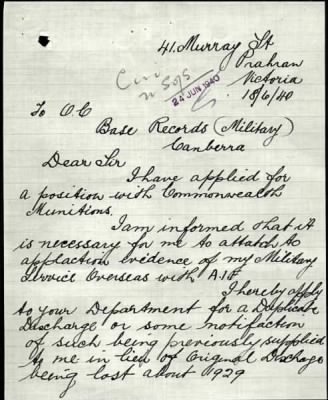 41. Murray St
Prahran
Victoria
18/6/40
24 JUN 1940
To O.C
Base Records (Military)
Canberra
Dear Sir
I have applied for
a position with Commonwealth
Munitions.
I am informed that it
is necessary for me to attatch to
applaction evidence of my Military
Service Overseas with A.I.F
I hereby apply
to your Department for a Duplicate
Discharge or some notifaction
of such being previously supplied
to me in lieu of Original Discharge
being lost about 1929